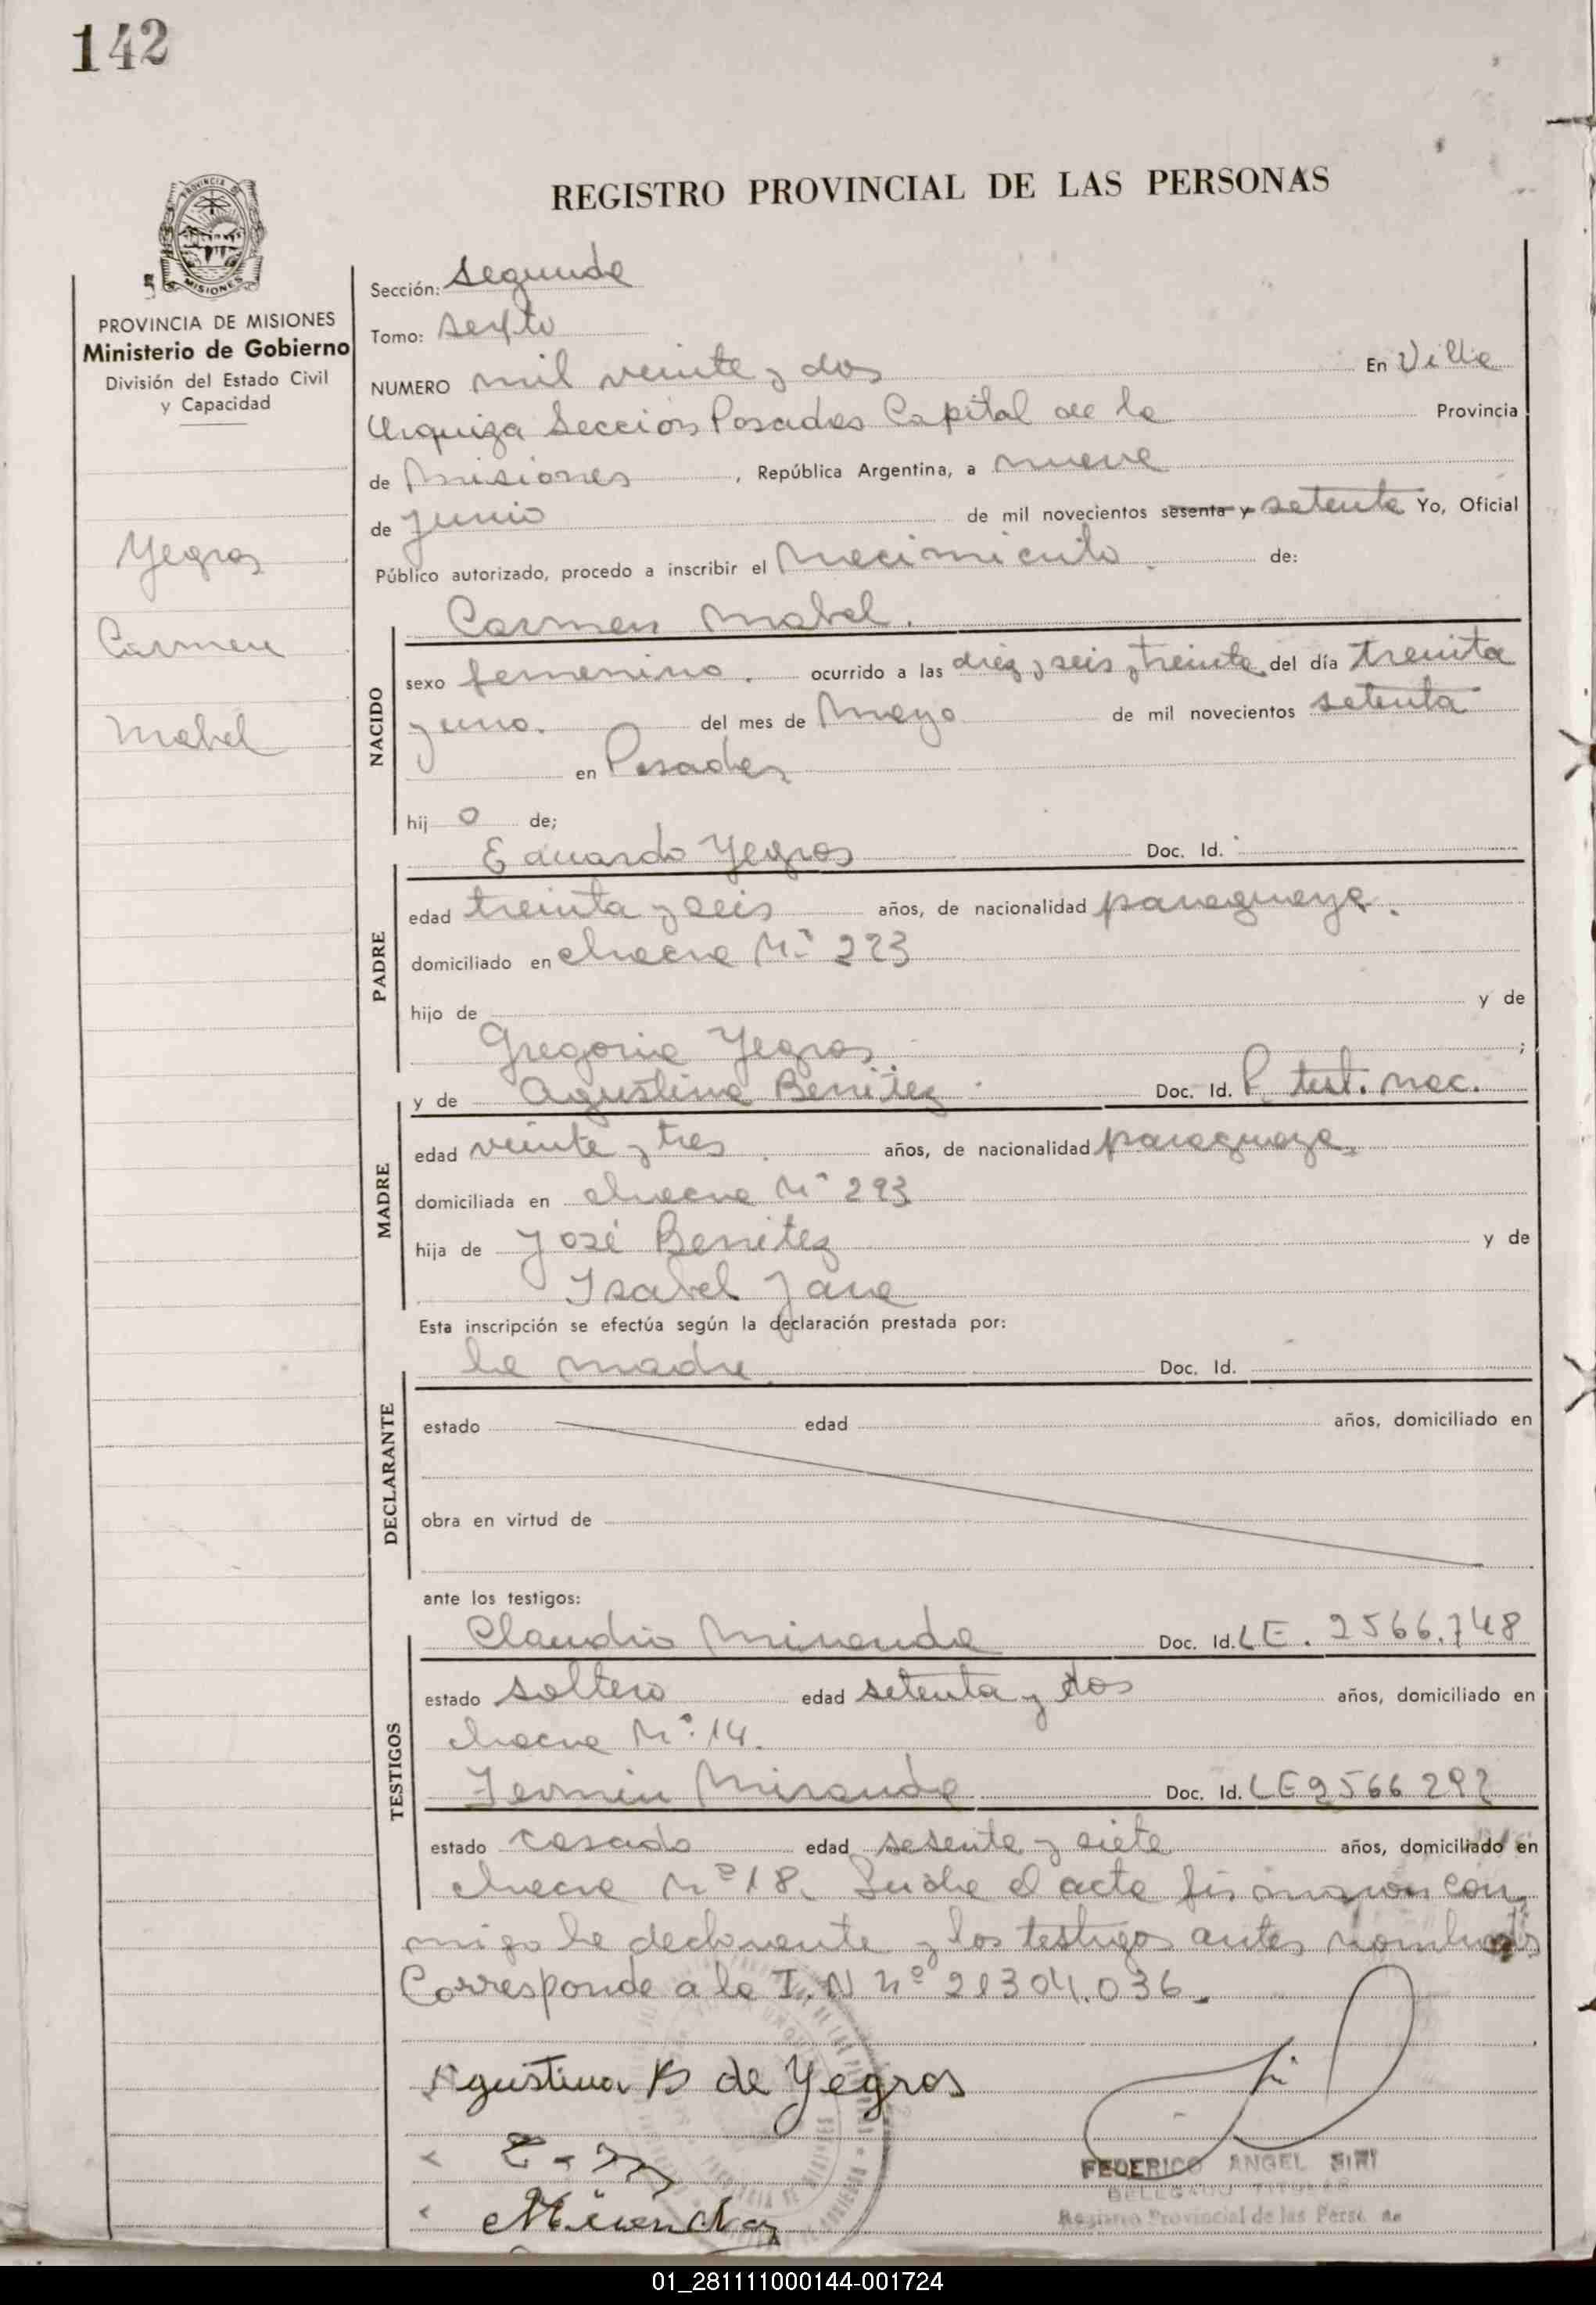 142
REGISTRO PROVINCIAL DE LAS PERSONAS
PROVINCIA DE MISIONES
PROVINCIA DE MISIONES
Ministerio de Gobierno
División del Estado Civil
y Capacidad
Yegros
Carmen
Mabel
Sección: Segunda
Tomo: sexto
NUMERO mil veinte y dos En Villa
Urquiza Sección Posadas Capital de la Provincia
de Misiones, República Argentina, a nueve
de Junio de mil novecientos sesenta y setenta Yo, Oficial
Público autorizado, procedo a inscribir el Nacimiento. de:
Carmen Mabel.
NACIDO
sexo femenino. ocurrido a las diez y seis y treinta del día treinta
y uno. del mes de Mayo de mil novecientos setenta
en Posadas
hij o de;
Eduardo Yegros Doc. Id.
PADRE
edad treinta y seis años, de nacionalidad paraguaya.
domiciliado en chacra Nº 293
hijo de y de
Gregoria Yegros ;
y de Agustina Benitez Doc. Id. P. test. nac.
MADRE
edad veinte y tres años, de nacionalidad paraguaya.
domiciliada en chacra Nº 293
hija de José Benitez y de
Isabel Jara
Esta inscripción se efectúa según la declaración prestada por:
la madre. Doc. Id.
DECLARANTE
estado edad años, domiciliado en
obra en virtud de
ante los testigos:
Claudio Miranda Doc. Id. LE. 2566.748
TESTIGOS
estado soltero edad setenta y dos años, domiciliado en
chacra Nº 14.
Fermin Miranda Doc. Id. LE 2566 292
estado casado edad sesenta y siete años, domiciliado en
chacra Nº 18. Leida el acta firmaron con
migo la declarante y los testigos antes nombrados
Corresponde a la I.N nº 21304.036.
Agustina B de Yegros
Miranda
FEDERICO ANGEL SIRI
DELEGADO TITULAR
Registro Provincial de las Personas
01_281111000144-001724